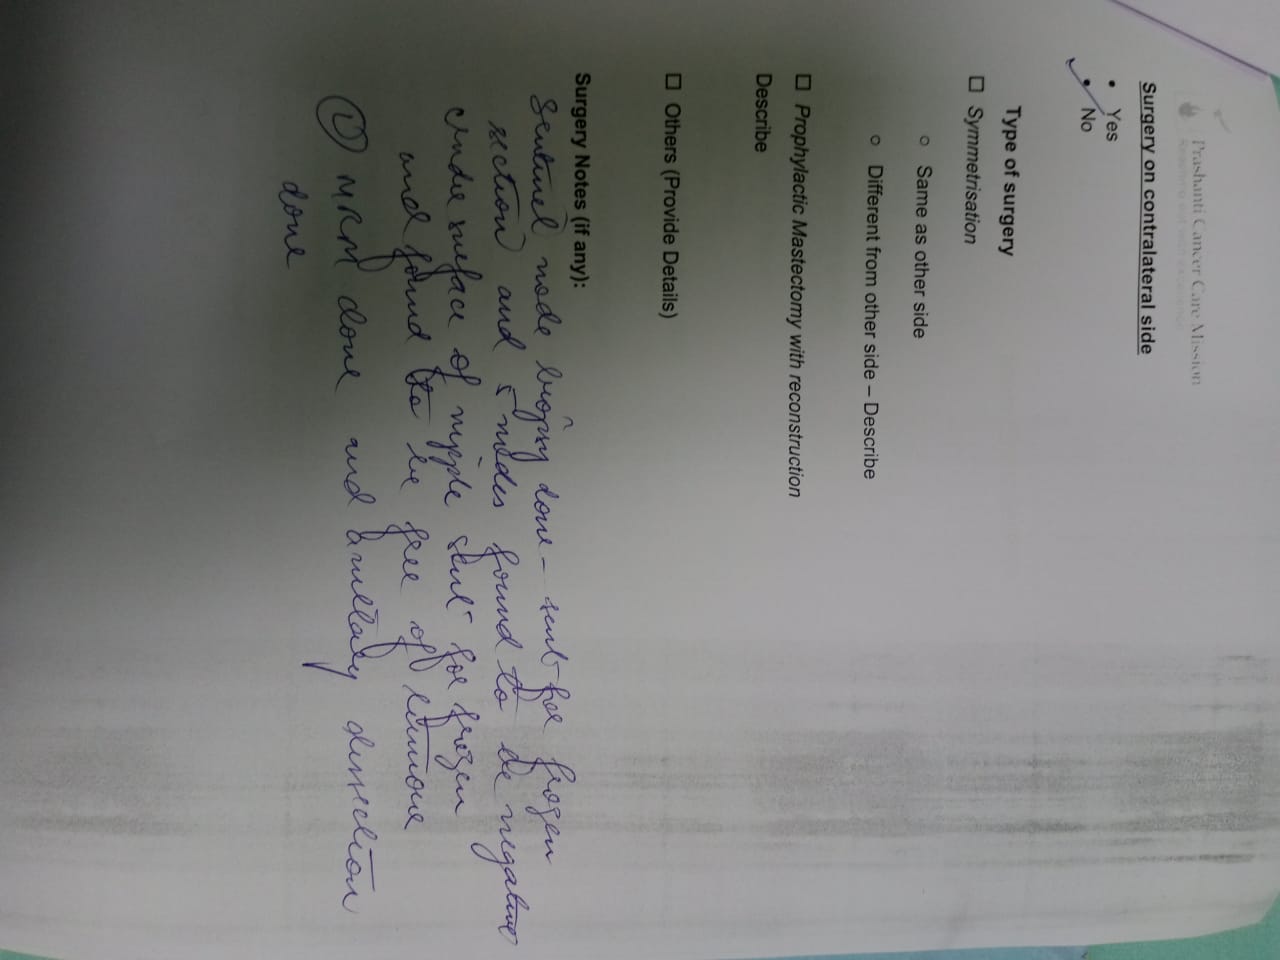 Prashanti Cancer Care Mission
Surgery on contralateral side
• Yes
• No
Type of surgery
☐ Symmetrisation
○ Same as other side
○ Different from other side – Describe
☐ Prophylactic Mastectomy with reconstruction
Describe
☐ Others (Provide Details)
Surgery Notes (if any):
Sentinel node biopsy done - sent for frozen
section and nodes found to be negative
surface of nipple sent for frozen
and found to be free of tumour
MRM done and axillary dissection
done